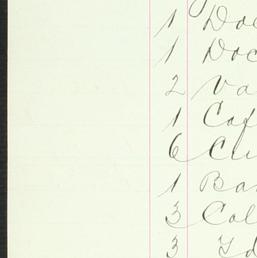 1 Doc
1 Doc
2 Va
1 Caf
6 Cu
1 Ba
3 Col
3